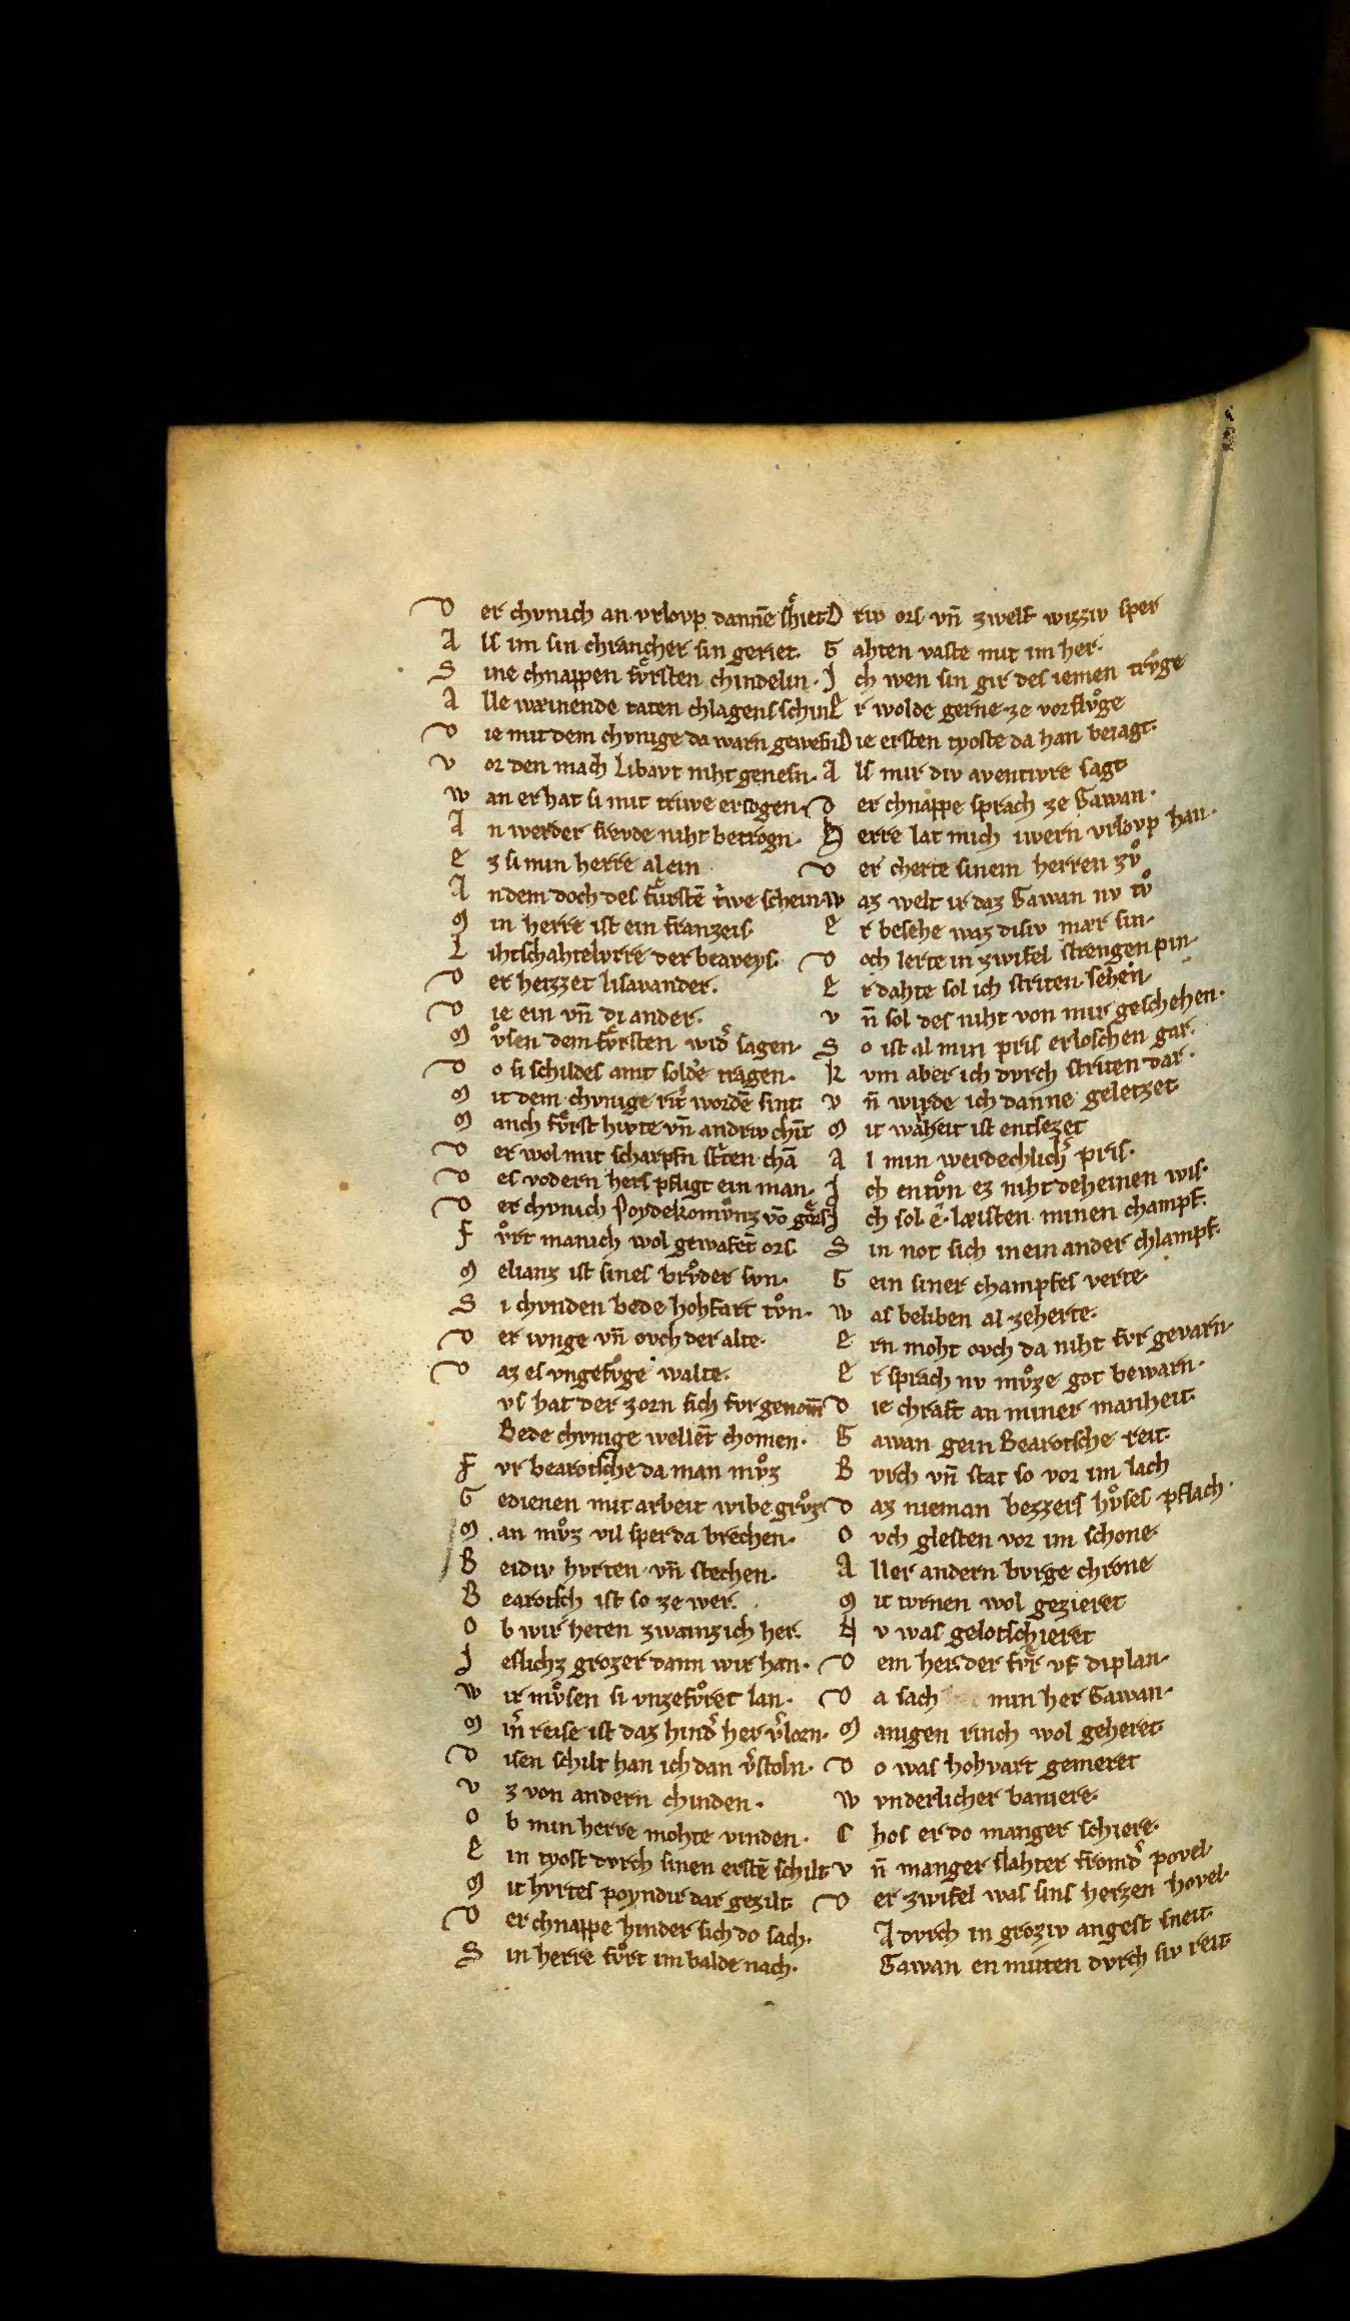 D er chvnich an vrlovp dannē schiet
A ls im sin chrancher sin geriet.
S ine chnappen fvͤrsten chindelin.
A lle wæinende taten chlagens schin
D ie mit dem chvnige da warn gewesn
V or den mach Libavt niht genesn.
W an er hat si mit triwe erzogen
A n werder frevde niht betrogn.
E z si min herre al ein
A n dem doch des fuͤrstē triwe schein
M in herre ist ein franzeis
L ihtschahtelvrre der beaveys.
D er heizzet lisavander.
D ie ein vn̄ di ander.
M vͦsen dem fvͤrsten wid͛ sagen.
D o si schildes amt solde tragen.
M it dem chvnige rit͛ wordē sint
M anch fvͤrst hivte vn̄ andriv chīt
D er wol mit scharpfn striten chā
D es vodern hers pfligt ein man.
D er chvnich Poydekomvͦnz vō gors
F vͦrt manich wol gewafēt ors.
M elianz ist sines brvͦder svn.
S i chvnden bede hohfart tvͦn.
D er ivnge vn̄ ovch der alte.
D az es vngefvͦge walte.
vs hat der zorn sich fvr genom̄
Bede chvnige wellēt chomen.
F vr bearotsche da man mvͦz
G edienen mit arbeit wibe grvͦz
M an mvͦz vil sper da brechen.
B eidiv hvrten vn̄ stechen.
B earotsch ist so ze wer.
O b wir heten zwainzich her.
I eslichz grozer dann wir han.
W ir mvͦsen si vnzefvͦret lan.
M in͛ reise ist daz hind͛ her v͛lorn.
D isen schilt han ich dan v͛stoln.
V z von andern chinden.
O b min herre mohte vinden.
E in tyost dvrch sinen erstē schilt
M it hvrtes poyndir dar gezilt.
D er chnappe hinder sich do sach.
S in herre fvͦrt im balde nach.
D riv ors vn̄ zwelf wizziv sper
G ahten vaste mit im her.
I ch wen sin gir des iemen trvͤge
E r wolde gerne ze vorflvͦge
D ie ersten tyoste da han beiagt.
A ls mir div aventivre sagt
D er chnappe sprach ze Gawan.
H erre lat mich iwern vrlovp han.
D er cherte sinem herren zvͦ
W az welt ir daz Gawan nv tvͦ
E r besehe waz disiv mær sin.
D och lerte in zwifel strengen pin.
E r dahte sol ich striten sehen.
V n̄ sol des niht von mir geschehen.
S o ist al min pris erloschen gar.
K vm aber ich dvrch striten dar.
V n̄ wirde ich danne geletzet
M it warheit ist entsezet
A l min werdechlich͛ pris.
I ch entvͦn ez niht deheinen wis.
I ch sol ê. læisten minen champf.
S in not sich in ein ander chlampf.
G ein siner champfes verte.
W as beliben al zeherte.
E rn moht ovch da niht fvr gevarn.
E r sprach nv mvͦze got bewarn.
D ie chraft an miner manheit.
G awan gein Bearotsche reit.
B vrch vn̄ stat so vor im lach
D az nieman bezzers hvͦses pflach.
O vch glesten vor im schone.
A ller andern bvrge chrone
M it tvrnen wol gezieret
N v was gelotschieret
D em her der fvͤr vf di plan.
D a sach min her Gawan.
M anigen rinch wol geheret.
D o was hohvart gemeret
W vnderlicher baniere.
C hos er do manger schiere.
V n̄ manger slahter fromd͛ povel.
D er zwifel was sins herzen hovel.
A dvrch in groziv angest sneit.
Gawan en mitten dvrch siv reit